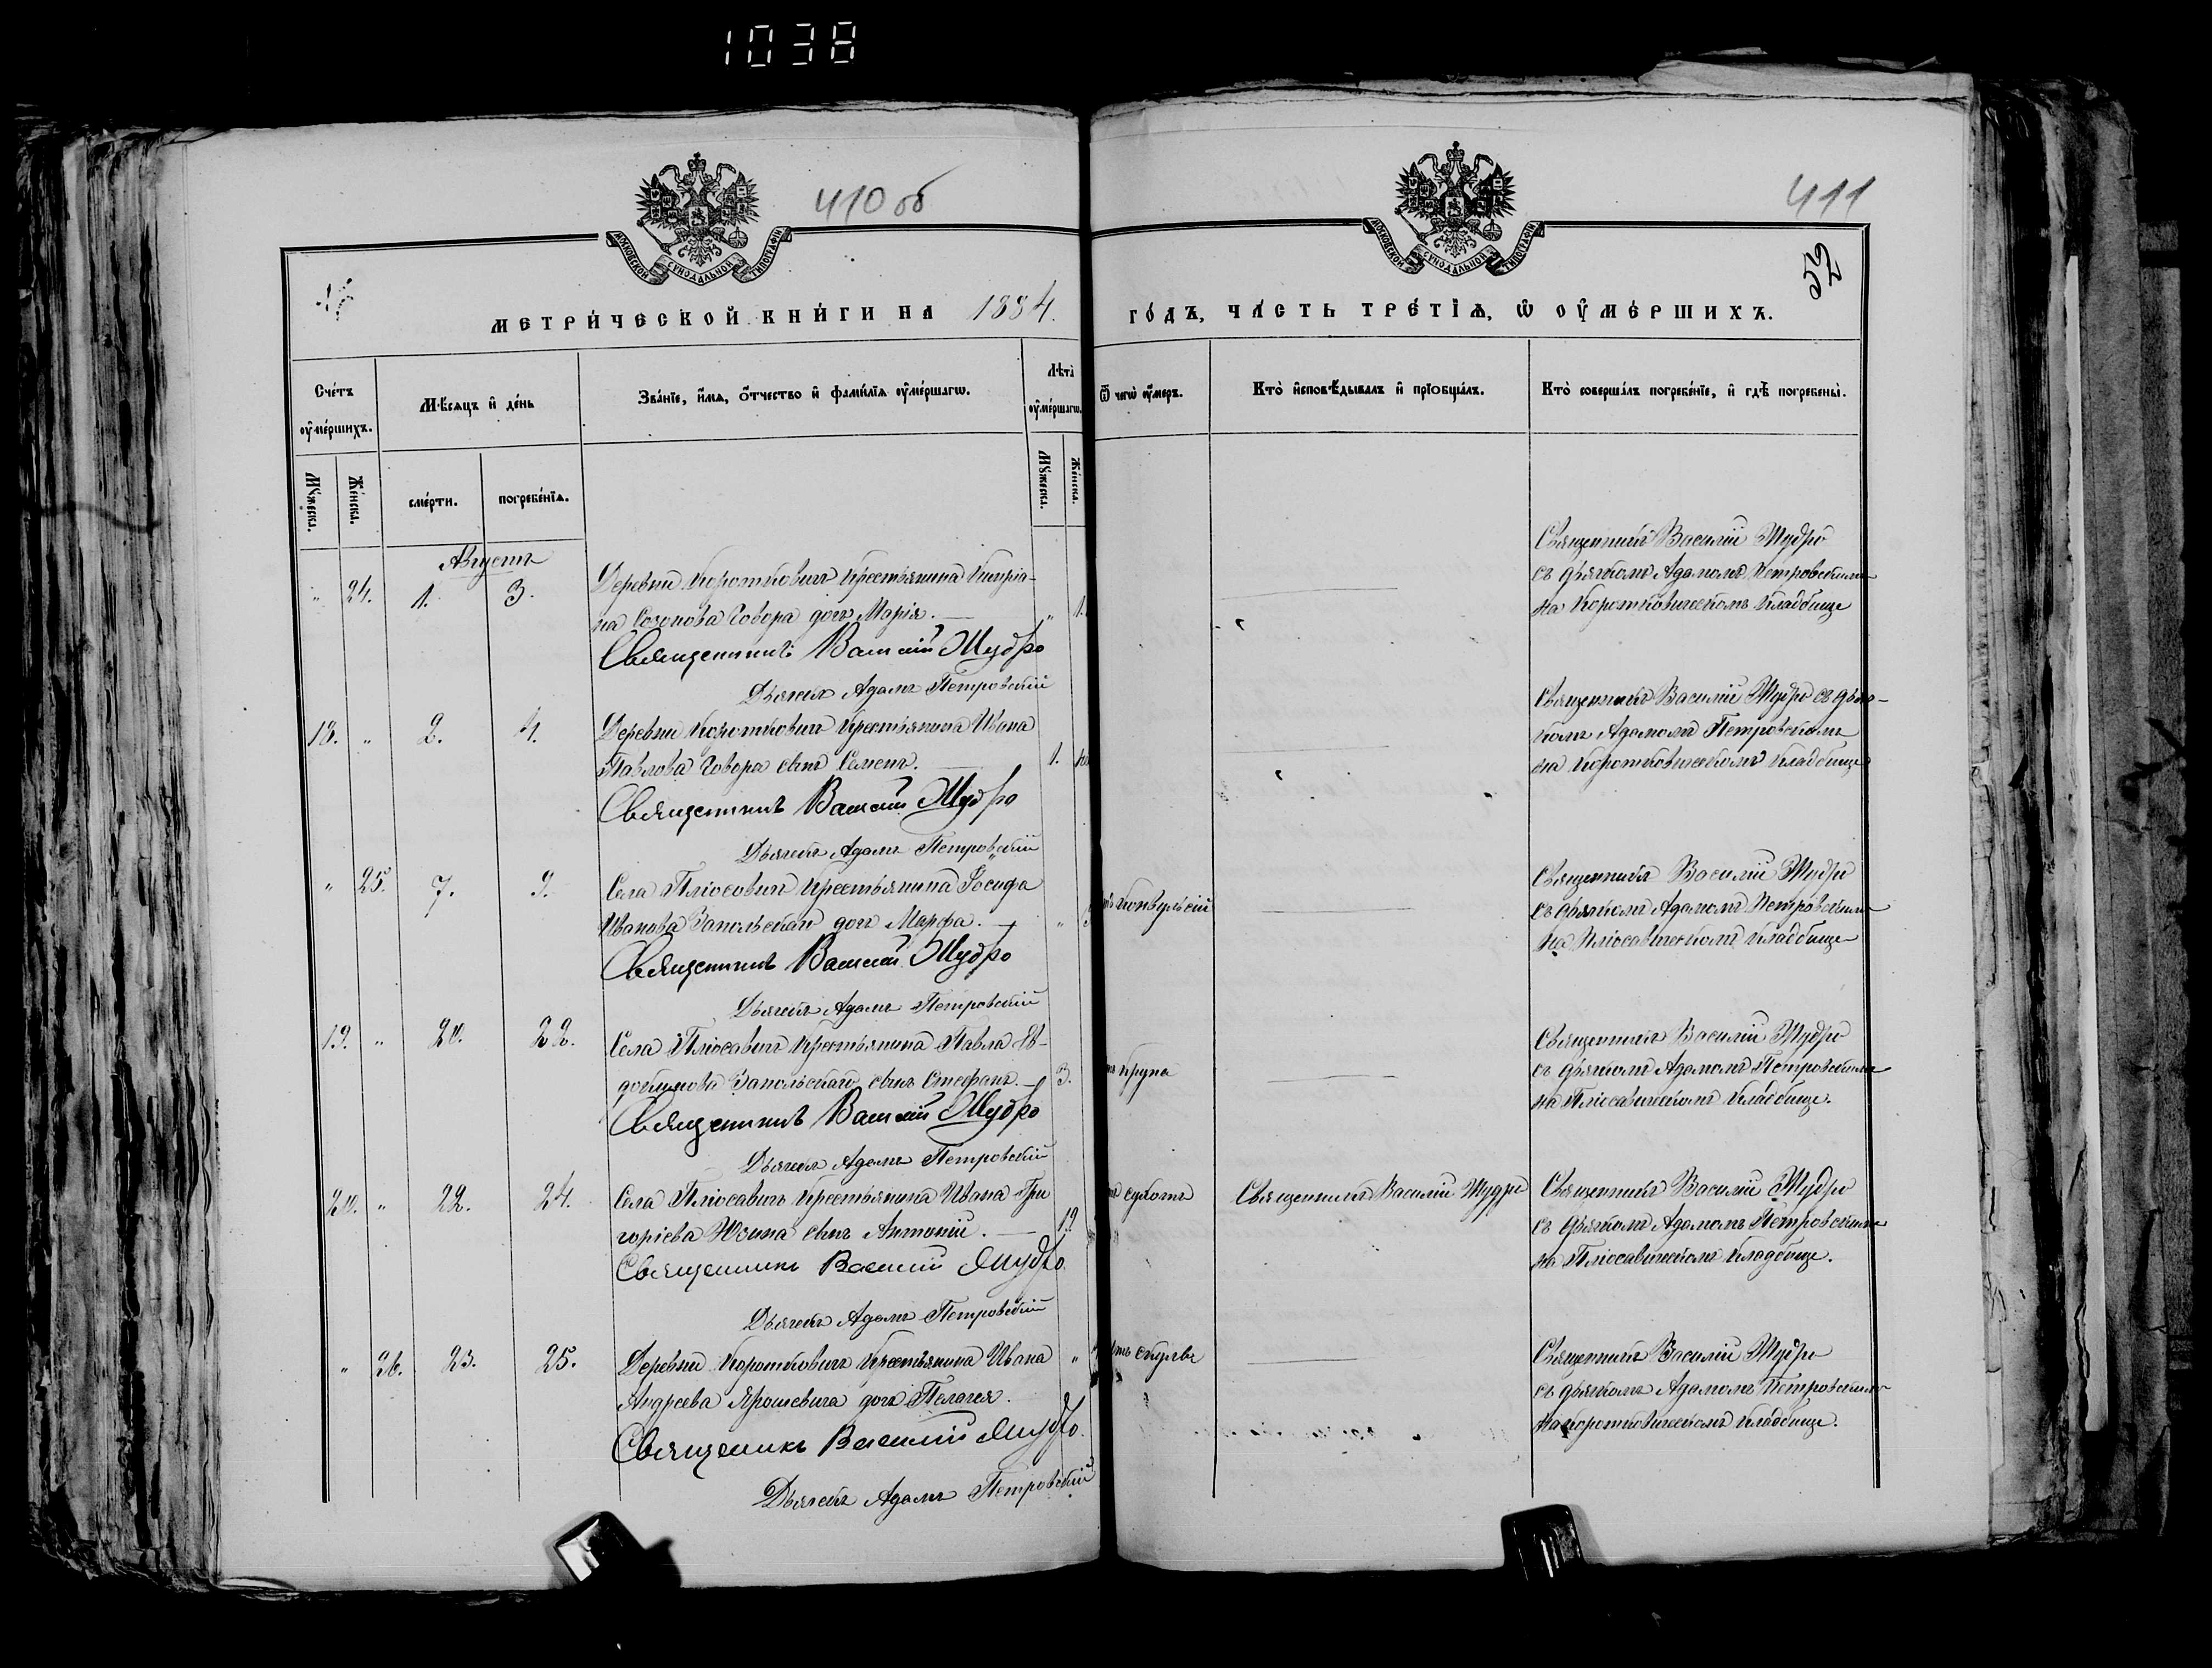 1038
410 об
411
52
МОСКОВСКОЙ СѴНОДАЛЬНОЙ ТИПОГРАФІИ
МОСКОВСКОЙ СѴНОДАЛЬНОЙ ТИПОГРАФІИ
МЕТРИ́ЧЕСКОЙ КНИ́ГИ НА 1884.
ГО́ДЪ, ЧА́СТЬ ТРЕ́ТІѦ, Ѡ ОУ҆МЕ́РШИХЪ.
Сче́тъ оу҆ме́ршихъ.
Мѣ́сяцъ и҆ де́нь
Зва́нїе, и҆́мѧ, ѻ҆́тчество и҆ фами́лїѧ оу҆ме́ршагѡ.
Лѣ́та оу҆ме́ршагѡ.
Ѿ чегѡ̀ оу҆́меръ.
Кто̀ и҆сповѣ́дывалъ и҆ прїобща́лъ.
Кто̀ соверша́лъ погребе́нїе, и҆ гдѣ̀ погребены̀.
Мꙋ́жеска.
Же́нска.
сме́рти.
погребе́нїѧ.
Мꙋ́жеска.
Же́нска.
Августъ
" 24. 1. 3. Деревни Коротковичъ крестьянина Кипріа-
на Созонова Говора дочь Марія. " 1.
Священникъ Василій Мудро
Дьячекъ Адамъ Петровскій
Священникъ Василій Мудро
съ дьячкомъ Адамомъ Петровскимъ
на Коротковическомъ кладбище
18. " 2. 4. Деревни Коротковичъ крестьянина Ивана
Павлова Говора сынъ Семенъ. 1.
Священникъ Василій Мудро
Дьячекъ Адамъ Петровскій
Священникъ Василій Мудро съ дьяч-
комъ Адамомъ Петровскимъ
на Коротковическомъ кладбище
" 25. 7. 9. Села Плюсовичъ крестьянина Іосифа
Иванова Запольскаго дочь Марфа. "
Священникъ Василій Мудро
Дьячекъ Адамъ Петровскій
конвульсій
Священникъ Василій Мудро
съ дьячкомъ Адамомъ Петровскимъ
на Плюсавическомъ кладбище
19. " 20. 22. Села Плюсавичъ крестьянина Павла Ев-
докимова Запольскаго сынъ Стефанъ. 3.
Священникъ Василій Мудро
Дьячекъ Адамъ Петровскій
крупа
Священникъ Василій Мудро
съ дьячкомъ Адамомъ Петровскимъ
на Плюсавическомъ кладбище.
20. " 22. 24. Села Плюсавичъ крестьянина Ивана Гри
горіева Юзина сынъ Антоній. 19
Священникъ Василій Мудро
Дьячекъ Адамъ Петровскій
сухотъ
Священникъ Василій Мудро
Священникъ Василій Мудро
съ дьячкомъ Адамомъ Петровскимъ
на Плюсавическомъ кладбище.
" 26. 23. 25. Деревни Коротковичъ крестьянина Ивана "
Андреева Ярошевича дочь Пелагея.
Священникъ Василій Мудро
Дьячекъ Адамъ Петровскій
Священникъ Василій Мудро
съ дьячкомъ Адамомъ Петровскимъ
на Коротковическомъ кладбище.